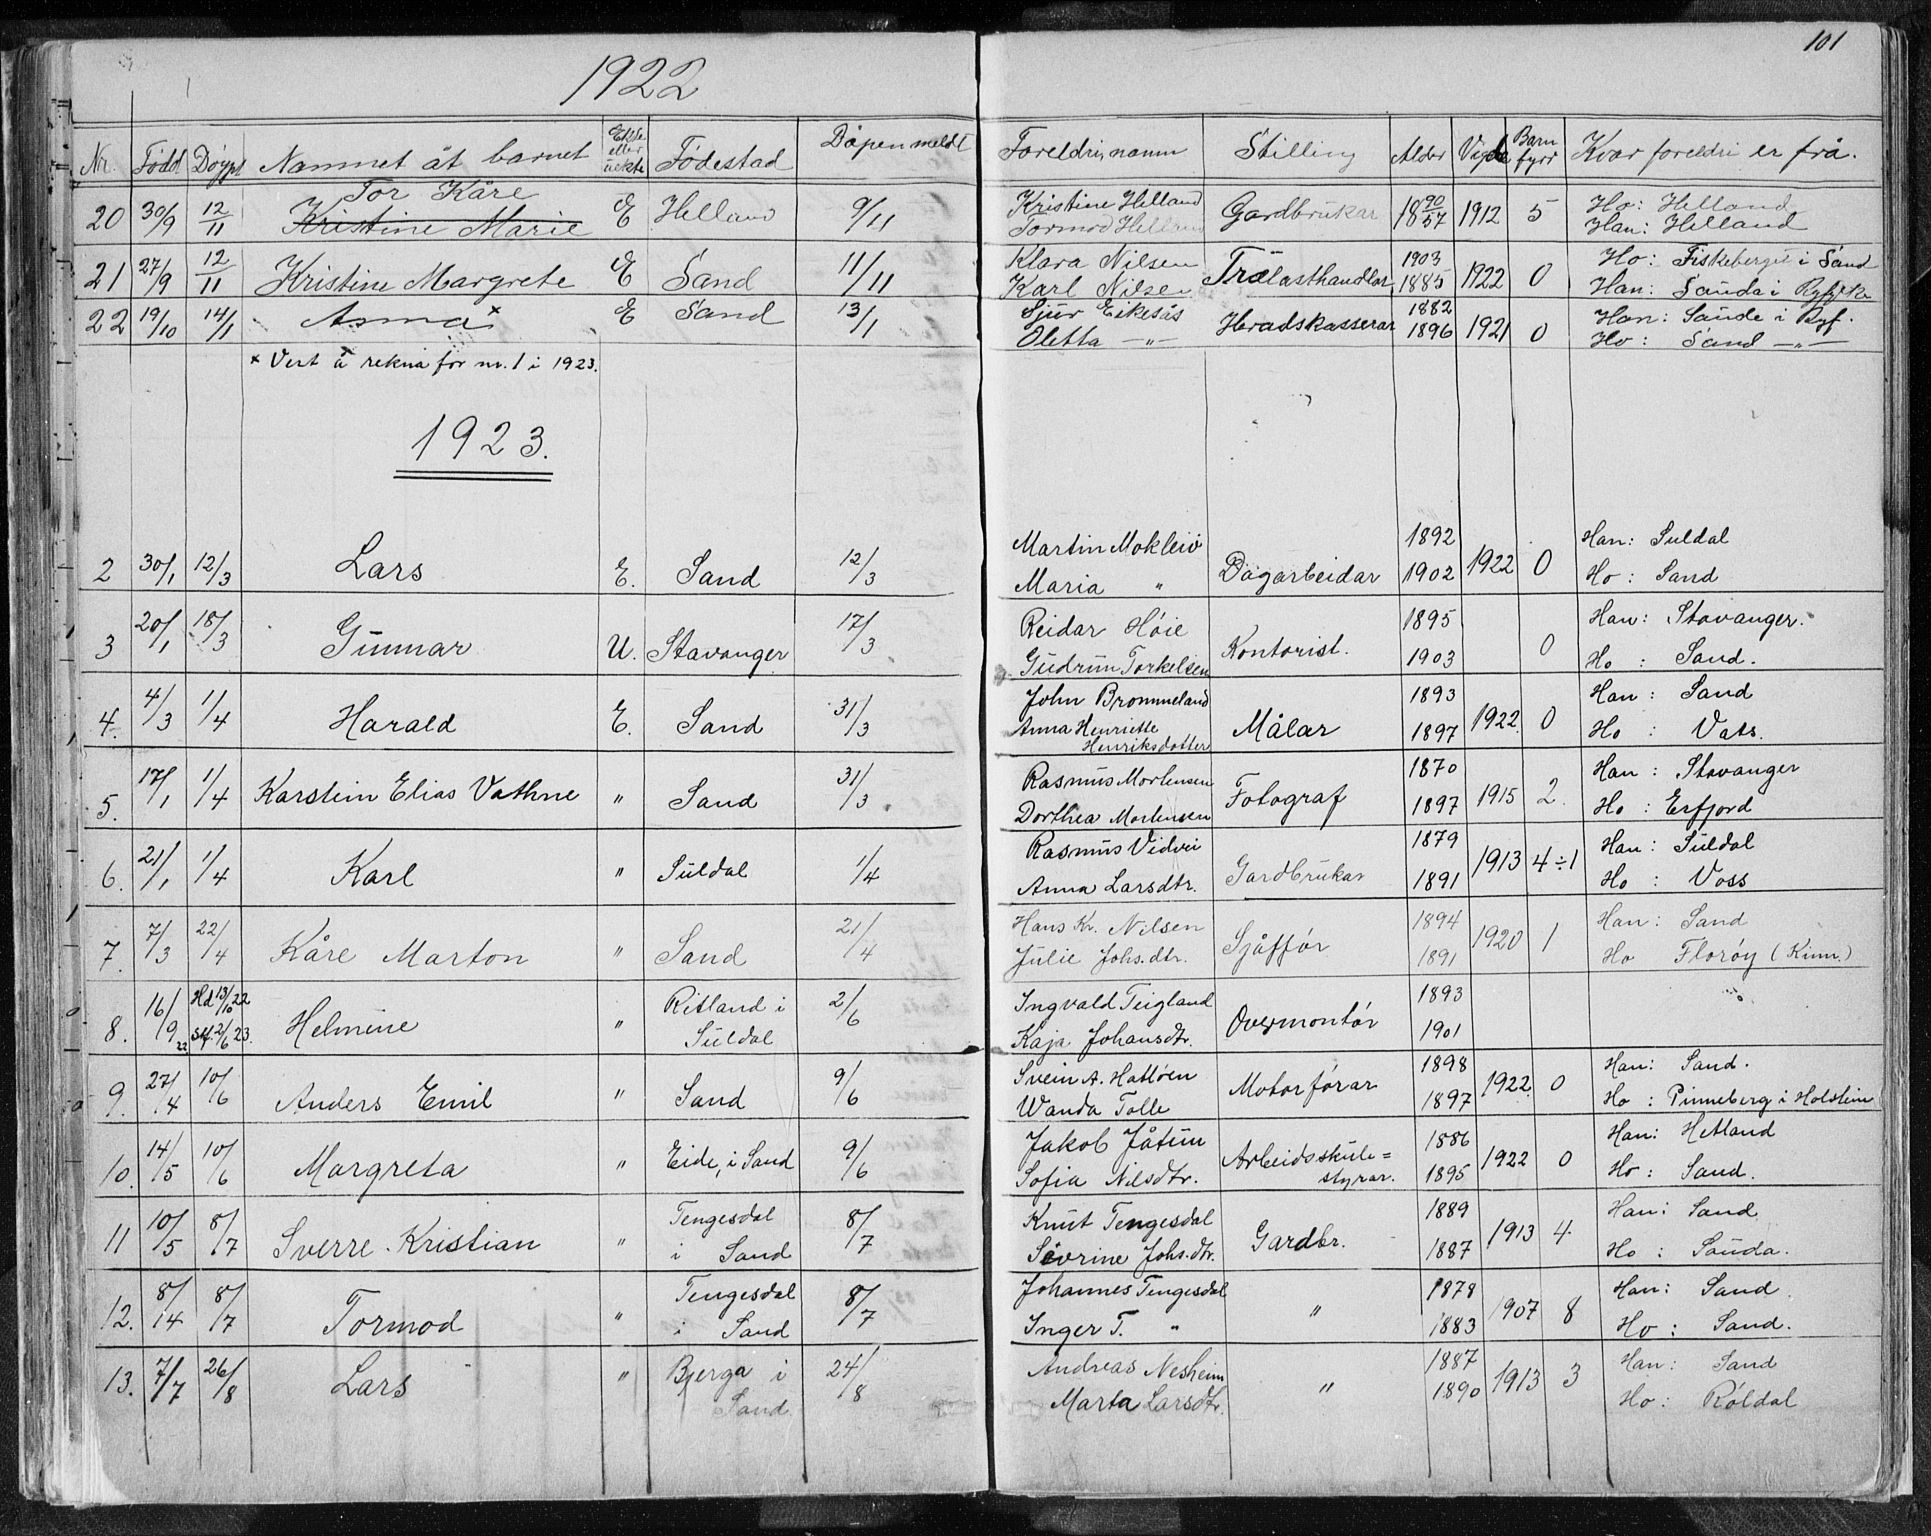 101
1922
Nr. Född Döypt Namnet åt barnet Ekte eller uekte Födestad Dåpen meldt Foreldri, namn Stilling Alder Vigde Barn fyrr Kvar foreldri er frå.
Tor Kåre
20 30/9 12/11 Kristine Marie E Helland 9/11 Kristine Helland Gardbrukar 1890 1912 5 Ho: Helland
Tormod Helland 57 Han: Helland
21 27/9 12/11 Kristine Margrete E Sand 11/11 Klara Nilsen Trälasthandlar 1903 1922 0 Ho: Fiskeberget i Sand
Karl Nilsen 1885 Han: Sauda i Ryfylke
22 19/10 14/1 Anna x E Sand 13/1 Sjur Eikesås Heradskasserar 1882 1921 0 Han: Saude i Ryf.
Oletta -"- 1896 Ho: Sand -"-
x Vert å rekna for nr. 1 i 1923.
1923.
2 30/1 12/3 Lars E. Sand 12/3 Martin Mokleiv Dagarbeidar 1892 1922 0 Han: Suldal
Maria " 1902 Ho: Sand
3 20/1 18/3 Gunnar U. Stavanger 17/3 Reidar Höie Kontorist. 1895 0 Han: Stavanger.
Gudrun Torkelsen 1903 Ho: Sand.
4. 4/3 1/4 Harald E. Sand 31/3 John Brommeland Målar 1893 1922. 0 Han: Sand
Anna Henriette 1897 Ho: Vats.
Henriksdotter
5. 17/1 1/4 Karstein Elias Vathne " Sand 31/3 Rasmus Mortensen Fotograf 1870 1915 2. Han: Stavanger
Dorthea Mortensen 1897 Ho: Erfjord
6. 21/1 1/4 Karl " Suldal 1/4 Rasmus Vidvei Gardbrukar 1879 1913 4÷1 Han: Suldal
Anna Larsdtr. 1891 Ho: Voss
7. 7/3 22/4 Kåre Marton " Sand 21/4 Hans Kr. Nilsen Sjåfför 1894 1920 1 Han: Sand
Julie Johs.dtr. 1891 Ho Floröy (Kinn.)
8. 16/9 22 Hd 13/10 22 Helmine " Ritland i 2/6 Ingvald Teigland Overmontör 1893
Stf. 2/6 23. Suldal Kaja Johansdtr. 1901
9. 27/4 10/6 Anders Emil " Sand 9/6 Svein A. Hatlöen Motorförar 1898 1922. 0 Han: Sand.
Wanda Tolle 1897 Ho: Pinneberg i Holstein
10. 14/5 10/6 Margreta " Eide, i Sand 9/6 Jakob Jåtun Arbeidsskule= 1886 1922 0 Han: Hetland
Sofia Nilsdtr. styrar. 1895 Ho: Sand.
11 10/5 8/7 Sverre Kristian " Tengesdal 8/7 Knut Tengesdal Gardbr. 1889 1913 4. Han: Sand
i Sand Severine Johs.dtr. 1887 Ho: Sauda.
12. 8/14 8/7 Tormod " Tengesdal 8/7 Johannes Tengesdal " 1878 1907 8 Han: Sand.
i Sand Inger T. " 1883 Ho: Sand.
13. 7/7 26/8 Lars " Bjerga i 24/8 Andreas Nesheim " 1887 1913 3 Han: Sand
Sand Marta Larsdtr. 1890 Ho: Röldal